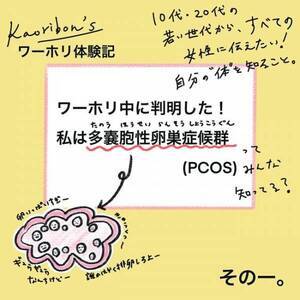 Kaoribon's
ワーホリ体験記
10代・20代の
若い世代から、すべての
女性に伝えたい!
自分の"体"を知ること。
ワーホリ中に判明した!
たのう ほうせい らんそう しょうこうぐん
私は多嚢胞性卵巣症候群
(PCOS)
って
みんな
知ってる?
卵いっぱいすぎー
ぎゅうぎゅう
なんすけどー
誰かはやく排卵しろよー
その一。